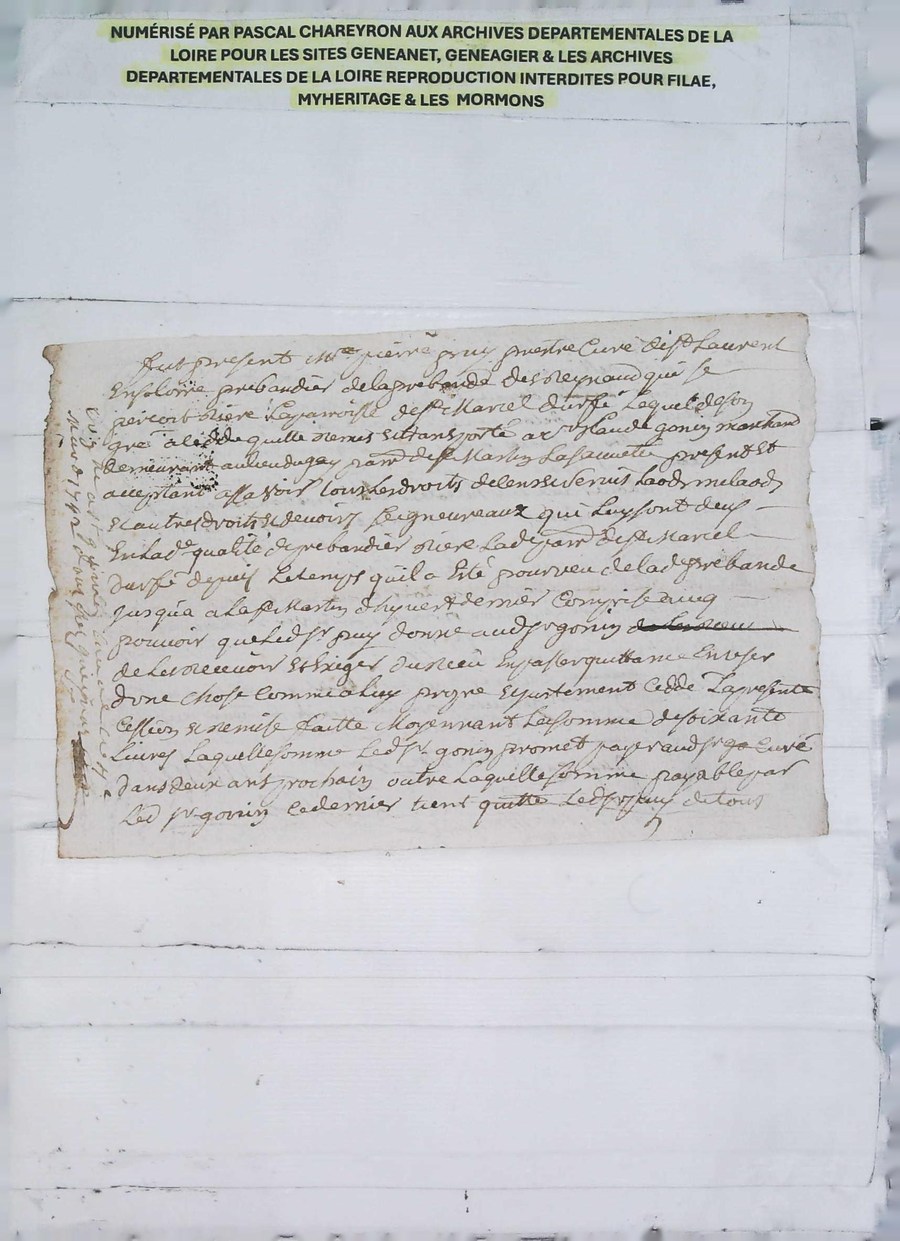 NUMÉRISÉ PAR PASCAL CHAREYRON AUX ARCHIVES DEPARTEMENTALES DE LA
LOIRE POUR LES SITES GENEANET, GENEAGIER & LES ARCHIVES
DEPARTEMENTALES DE LA LOIRE REPRODUCTION INTERDITES POUR FILAE,
MYHERITAGE & LES MORMONS
fut present Mre pierre puy prestre Curé de st Laurent
Ensolorre prebandier de la prebande des Reynaud qui se
percoit riere La parroisse de st Marcel durfé Lequel de son
gré a cédde quitte remis et transporté a sr Claude gonin marchand
demeurant au lieu du gay parr de st Martin La sauveté present et
acceptant assavoir tous Les droits de cens et servis Laods milaods
et autres droits et devoirs seigneuraux qui Luy sont deus
En Lade qualité de prebandier riere Lad parr de st Marcel
durfé depuis Le temps qu'il a Esté pourveu de lade prebande
Jusqua a La st Martin d'hyvert dernier Comprise avec
pouvoir que Led sr puy donne aud sr gonin
de Les Recevoir Et Exiger du Receu En passer quittance En user
donc chose Comme a Luy propre et partement cedde La presente
Cession et remise faitte Moyennant La somme de soixante
Livres Laquelle somme Led sr gonin promet payer aud sr Curé
dans deux ans prochain outre Laquelle somme payable par
Led sr gonin Ce dernier tient quitte Led sr puy de tous